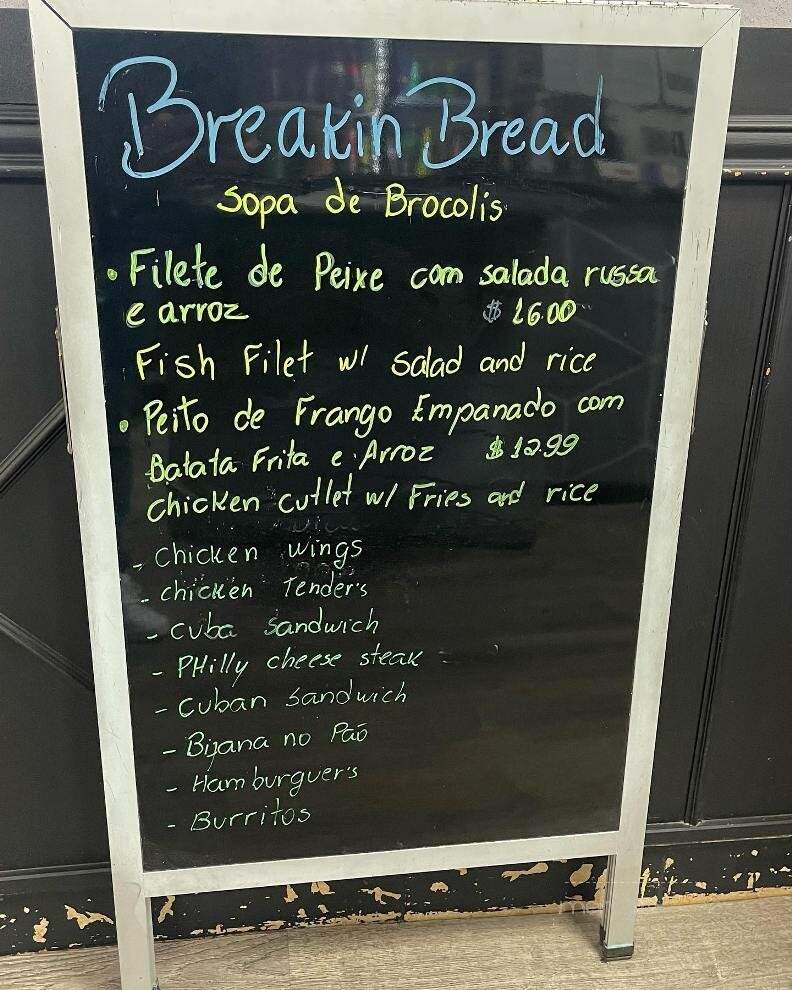 Breakin Bread
Sopa de Brocolis
• Filete de Peixe com salada russa
e arroz $ 16.00
Fish Filet w/ salad and rice
• Peito de Frango Empanado com
Batata Frita e Arroz $ 12.99
Chicken cutlet w/ Fries and rice
- Chicken wings
- chicken Tender's
- Cuba Sandwich
- PHilly cheese steak
- Cuban Sandwich
- Bijana no Pão
- Hamburguer's
- Burritos